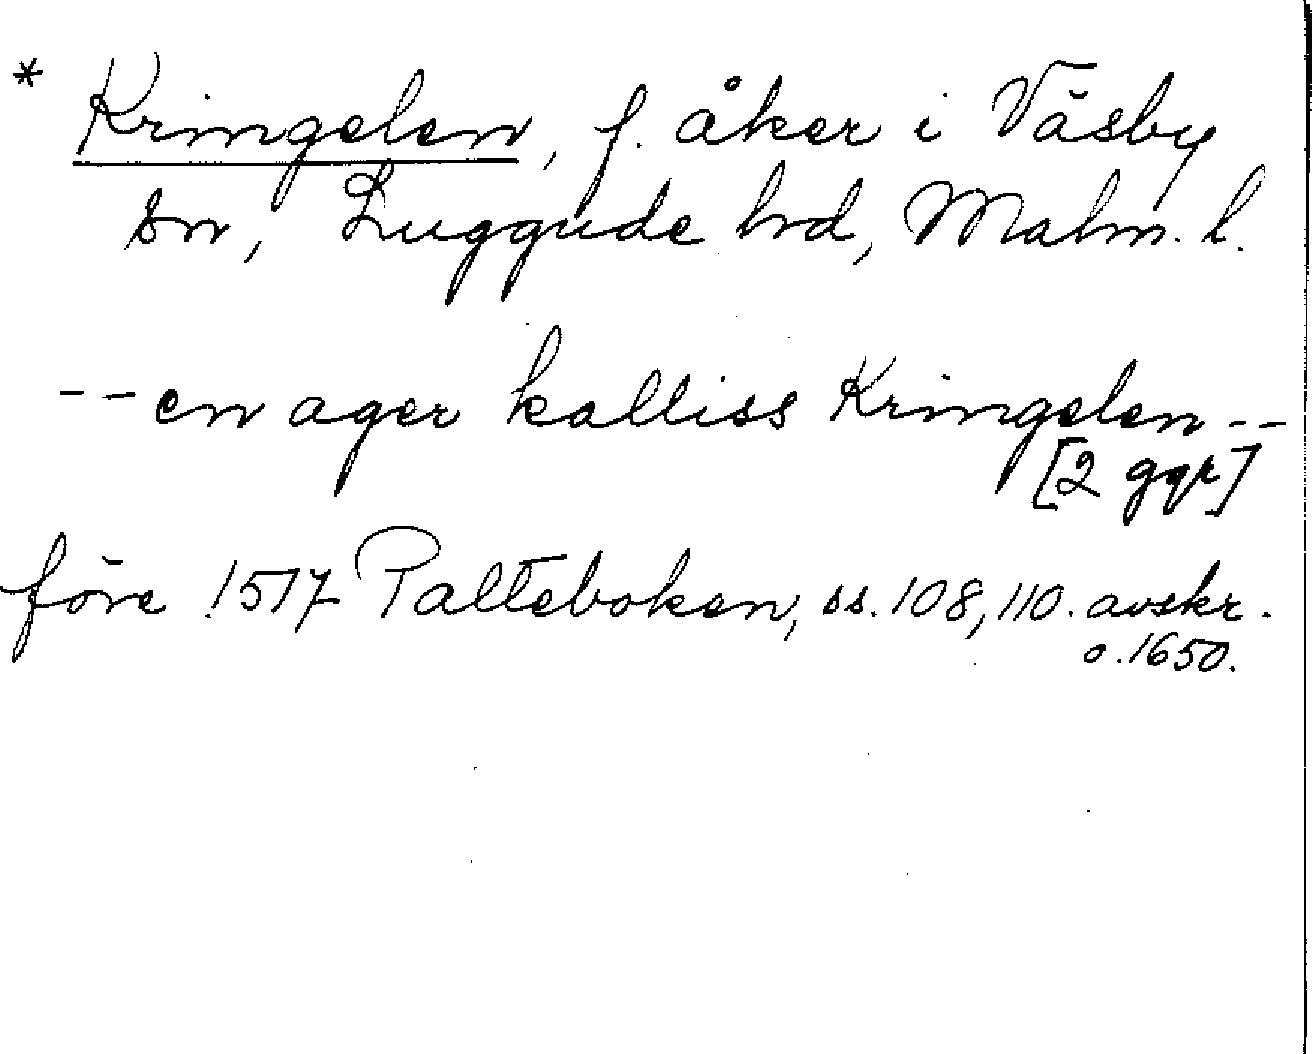 * Kringelen, f. åker i Väsby
sn, Luggude hrd, Malm. l.
-- en ager kalliss Kringelen --
[2 ggr]
före 1517 Palteboken, ss. 108, 110. avskr.
o. 1650.